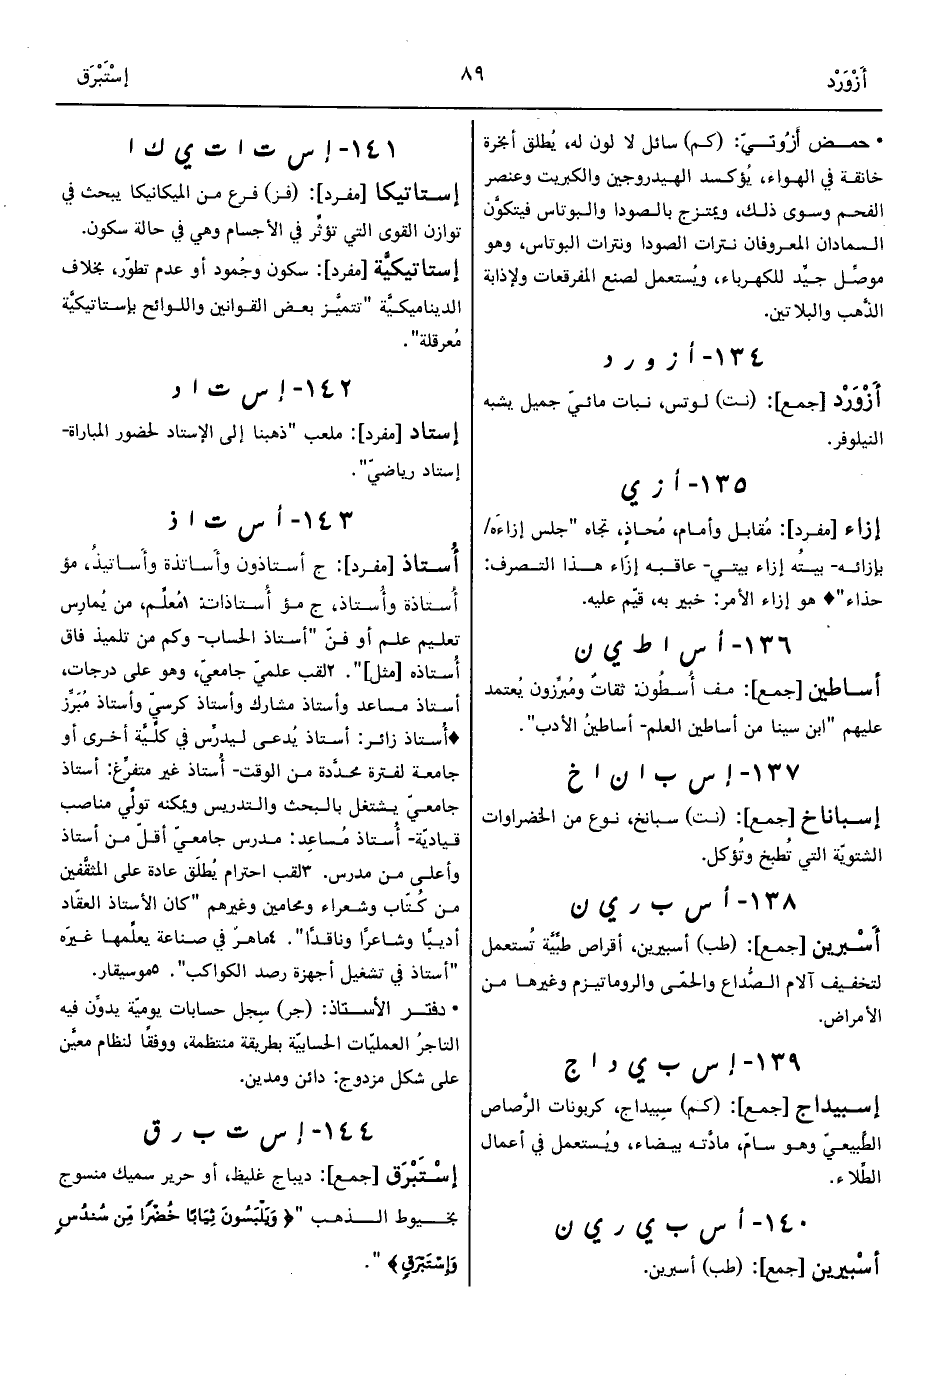 أَزْوَرْد
٨٩
إسْتَبْرَق
• حمـض أزُوتـيّ: (كم) سائل لا لون له، يُطلق أبخرة
خانقة في الهواء، يُؤكسد الهيدروجين والكبريت وعنصر
الفحم وسوى ذلك، ويمتزج بالصودا والبوتاس فيتكوَّن
السمادان المعروفان نترات الصودا ونترات البوتاس، وهو
موصِّل جيِّد للكهرباء، ويُستعمل لصنع المفرقعات ولإذابة
الذَّهب والبلاتين.
١٣٤- أ ز و ر د
أَزْوَرْد [جمع]: (نت) لوتس، نبات مائيّ جميل يشبه
النيلوفر.
١٣٥- أ ز ي
إزاء [مفرد]: مُقابل وأمام، مُحاذٍ، تجاه "جلس إزاءَه/
بإزائه- بيتُه إزاء بيتي- عاقبه إزاء هذا التصرف:
حذاء"♦ هو إزاء الأمر: خبير به، قيّم عليه.
١٣٦- أ س ا ط ي ن
أساطين [جمع]: مف أُسطُون: ثقاتٌ ومُبرِّزون يُعتمد
عليهم "ابن سينا من أساطين العلم- أساطينُ الأدب".
١٣٧- إ س ب ا ن ا خ
إسباناخ [جمع]: (نت) سبانخ، نوع من الخضراوات
الشتويّة التي تُطبخ وتُؤكل.
١٣٨- أ س ب ر ي ن
أَسْبرين [جمع]: (طب) أسبيرين، أقراص طبِّيَّة تُستعمل
لتخفيف آلام الصُّداع والحمّى والروماتيزم وغيرها من
الأمراض.
١٣٩- إ س ب ي د ا ج
إسبيداج [جمع]: (كم) سبيداج، كربونات الرَّصاص
الطَّبيعيّ وهو سامّ، مادَّته بيضاء، ويُستعمل في أعمال
الطِّلاء.
١٤٠- أ س ب ي ر ي ن
أسْبيرين [جمع]: (طب) أسبرين.
١٤١- إ س ت ا ت ي ك ا
إستاتيكا [مفرد]: (فز) فرع من الميكانيكا يبحث في
توازن القوى التي تؤثِّر في الأجسام وهي في حالة سكون.
إستاتيكيَّة [مفرد]: سكون وجُمود أو عدم تطوّر، بخلاف
الديناميكيَّة "تتميَّز بعض القوانين واللوائح بإستاتيكيَّة
مُعرقلة".
١٤٢- إ س ت ا د
إستاد [مفرد]: ملعب "ذهبنا إلى الإستاد لحضور المباراة-
إستاد رياضيّ".
١٤٣- أ س ت ا ذ
أُستاذ [مفرد]: ج أستاذون وأساتذة وأساتيذُ، مؤ
أُستاذة وأُستاذ، ج مؤ أُستاذات: ١مُعلِّم، من يُمارِس
تعليم علم أو فنّ "أستاذ الحساب- وكم من تلميذ فاق
أُستاذه [مثل]". ٢لقب علميّ جامعيّ، وهو على درجات،
أستاذ مساعد وأستاذ مشارك وأستاذ كرسيّ وأستاذ مُبَرِّز
♦أُستاذ زائر: أستاذ يُدعى ليدرِّس في كلِّيَّة أخرى أو
جامعة لفترة محدَّدة من الوقت- أُستاذ غير متفرِّغ: أستاذ
جامعيّ يشتغل بالبحث والتدريس ويمكنه تولّي مناصب
قياديّة- أُستاذ مُساعِد: مدرس جامعيّ أقلّ من أستاذ
وأعلى من مدرس. ٣لقب احترام يُطلَق عادة على المثقَّفين
من كُتّاب وشعراء ومحامين وغيرهم "كان الأستاذ العقّاد
أديبًا وشاعرًا وناقدًا". ٤ماهرٌ في صناعة يعلّمها غيرَه
"أستاذ في تشغيل أجهزة رصد الكواكب". ٥موسيقار.
• دفتر الأستاذ: (جر) سِجل حسابات يوميّة يدوِّن فيه
التاجرُ العمليّات الحسابيّة بطريقة منتظمة، ووفقًا لنظام معيَّن
على شكل مزدوج: دائن ومدين.
١٤٤- إ س ت ب ر ق
إسْتَبْرَق [جمع]: ديباج غليظ، أو حرير سميك منسوج
بخيوط الذهب "﴿ وَيَلْبَسُونَ ثِيَابًا خُضْرًا مِّن سُندُسٍ
وَإِسْتَبْرَقٍ﴾ ".